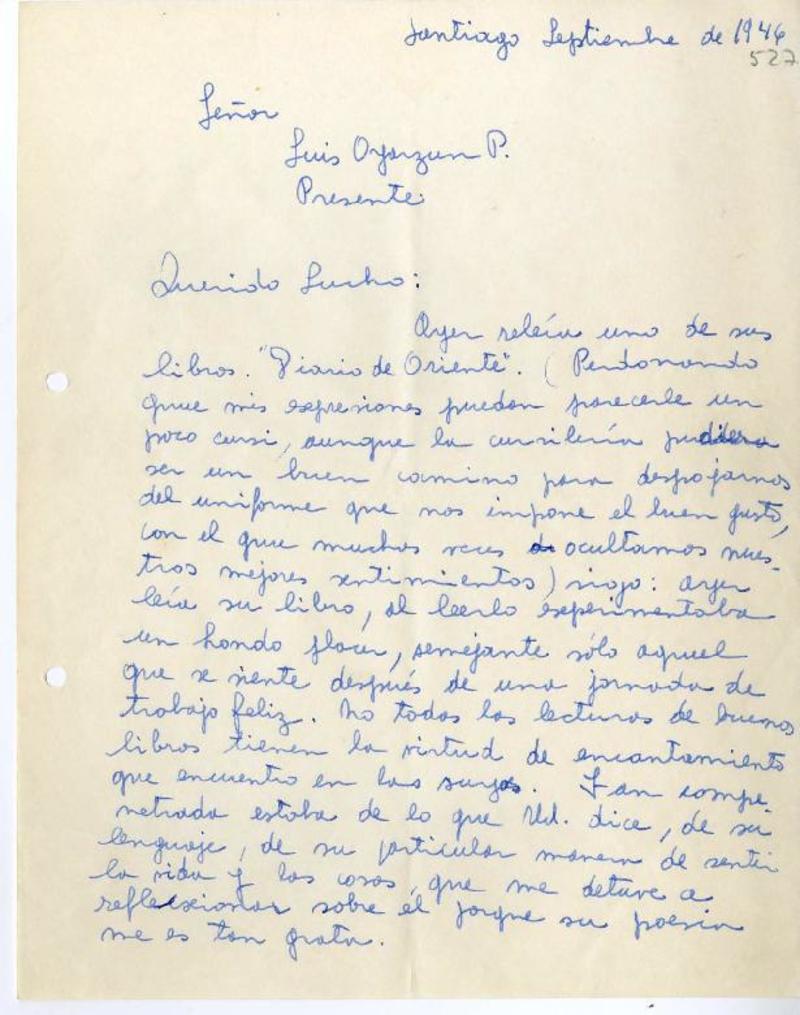 Santiago Septiembre de 1946
527
Señor
Luis Oyarzun P.
Presente
Querido Lucho:
Ayer releía uno de sus
libros. "Diario de Oriente". (Perdonando
que mis expresiones puedan parecerle un
poco cursi, aunque la cursilería pudiera
ser un buen camino para despojarnos
del uniforme que nos impone el buen gusto,
con el que muchas veces ocultamos nues-
tros mejores sentimientos) sigo: ayer
leía su libro, al leerlo experimentaba
un hondo placer, semejante sólo aquel
que se siente después de una jornada de
trabajo feliz. No todas las lecturas de buenos
libros tienen la virtud de encantamiento
que encuentro en las suyas. Tan compe-
netrada estaba de lo que Ud. dice, de su
lenguaje, de su particular manera de sentir
la vida y las cosas, que me detuve a
reflexionar sobre el porque su poesia
me es tan grata.